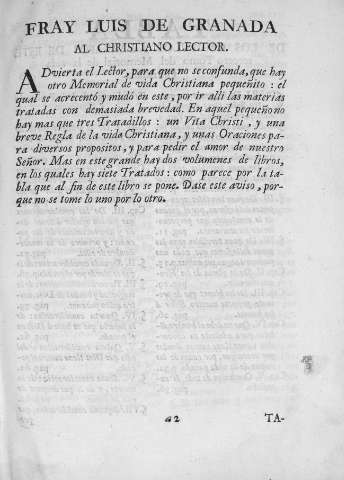 FRAY LUIS DE GRANADA
AL CHRISTIANO LECTOR.
ADvierta el Lector, para que no se confunda, que hay
otro Memorial de vida Christiana pequeñito : el
qual se acrecentó y mudó en este, por ir alli las materias
tratadas con demasiada brevedad. En aquel pequeño no
hay mas que tres Tratadillos : un Vita Christi, y una
breve Regla de la vida Christiana, y unas Oraciones pa-
ra diversos propositos, y para pedir el amor de nuestro
Señor. Mas en este grande hay dos volumenes de libros,
en los quales hay siete Tratados: como parece por la ta-
bla que al fin de este libro se pone. Dase este aviso, por-
que no se tome lo uno por lo otro.
a 2
TA-